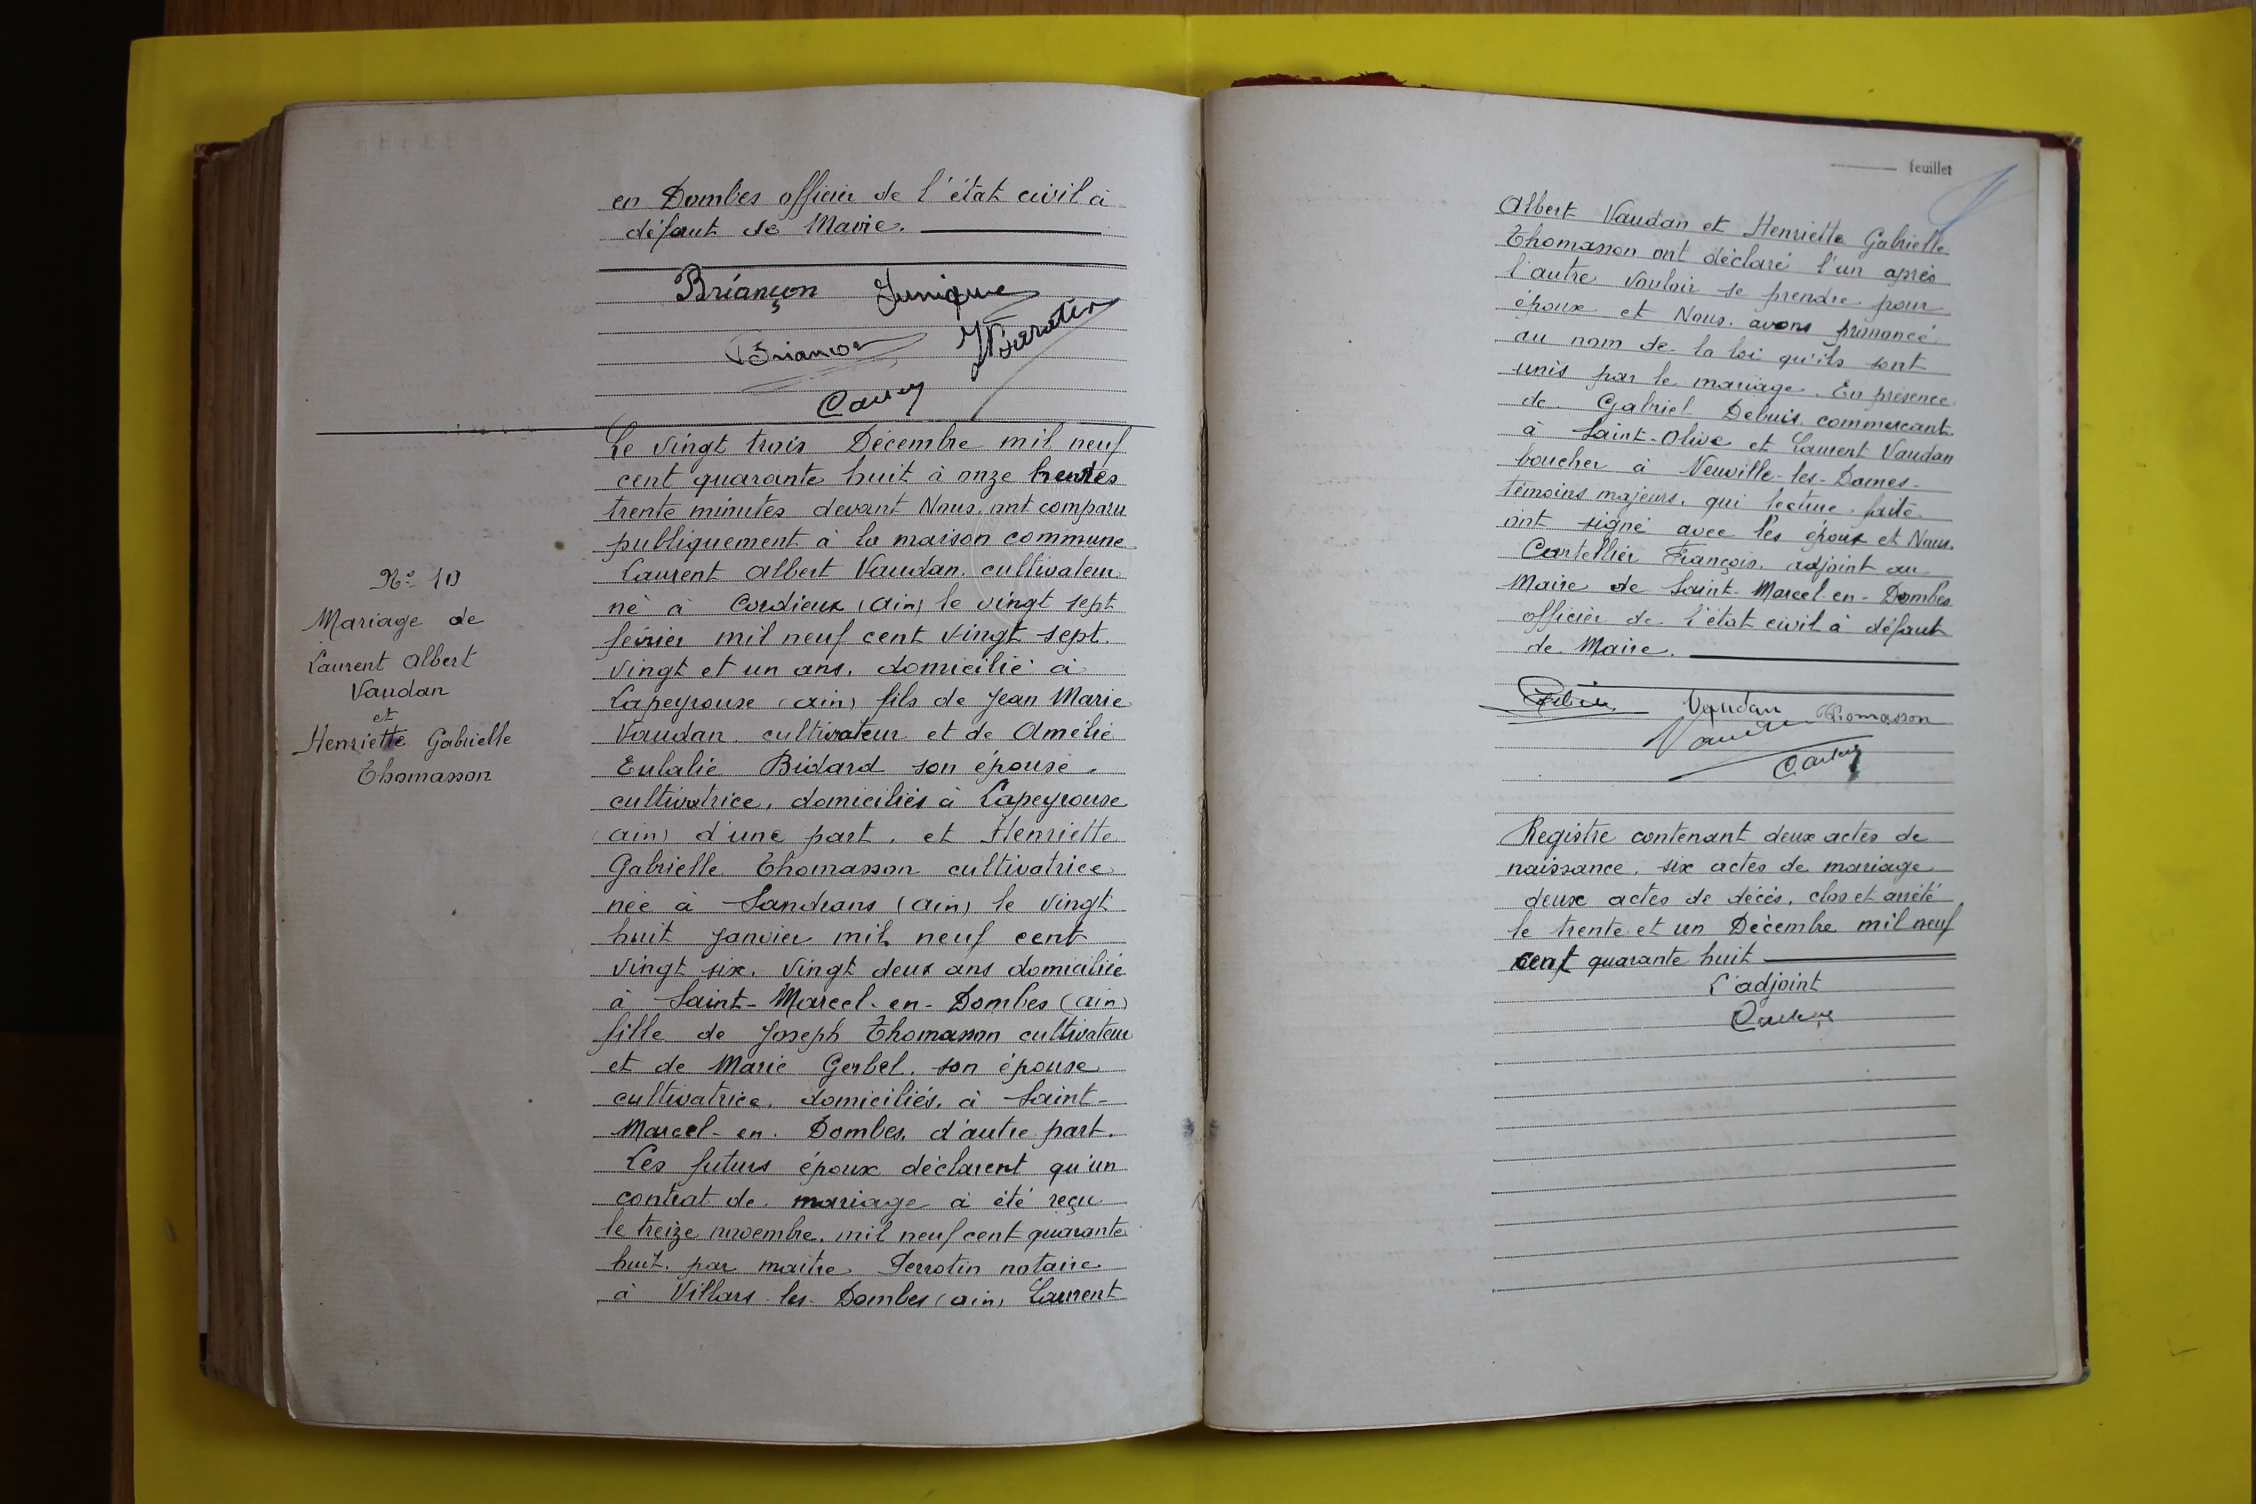 en Dombes officier de l'état civil à
défaut de Maire.
Briançon Junique
Briançon
Le vingt trois Décembre mil neuf
cent quarante huit à onze heures
trente minutes devant Nous, ont comparu
publiquement à la maison commune
Laurent Albert Vaudan, cultivateur
né à Cordieux (ain) le vingt sept
février mil neuf cent vingt sept.
vingt et un ans, domicilié à
Lapeyrouse (ain) fils de Jean Marie
Vaudan, cultivateur et de Amélie
Eulalie Bidard son épouse.
cultivatrice, domiciliés à Lapeyrouse
(ain) d'une part, et Henriette
Gabrielle Thomasson cultivatrice
née à Sandrans (ain) le vingt
huit Janvier mil neuf cent
vingt six, vingt deux ans domiciliée
à Saint-Marcel-en-Dombes (ain)
fille de Joseph Thomasson cultivateur
et de Marie Gerbel, son épouse
cultivatrice, domiciliés, à Saint-
Marcel-en-Dombes, d'autre part.
Les futurs époux déclarent qu'un
contrat de mariage à été reçu
le treize novembre, mil neuf cent quarante
huit, par maitre Perrotin notaire
à Villars-les-Dombes (ain) Laurent
No 10
Mariage de
Laurent Albert
Vaudan
et
Henriette Gabrielle
Thomasson
feuillet
Albert Vaudan et Henriette Gabrielle
Thomasson ont déclaré l'un après
l'autre vouloir se prendre pour
époux et Nous avons prononcé
au nom de la loi qu'ils sont
unis par le mariage. En présence
de Gabriel Debuis, commercant
à Saint-Olive et Laurent Vaudan
boucher à Neuville-les-Dames-
témoins majeurs, qui lecture faite
ont signé avec les époux et Nous,
Cartellier François, adjoint au
Maire de Saint-Marcel-en-Dombes
officier de l'état civil à défaut
de Maire.
Vaudan Thomasson
Vaudan
Registre contenant deux actes de
naissance, six actes de mariage
deux actes de décès, clos et arrêté
le trente et un Décembre mil neuf
cent quarante huit
L'adjoint